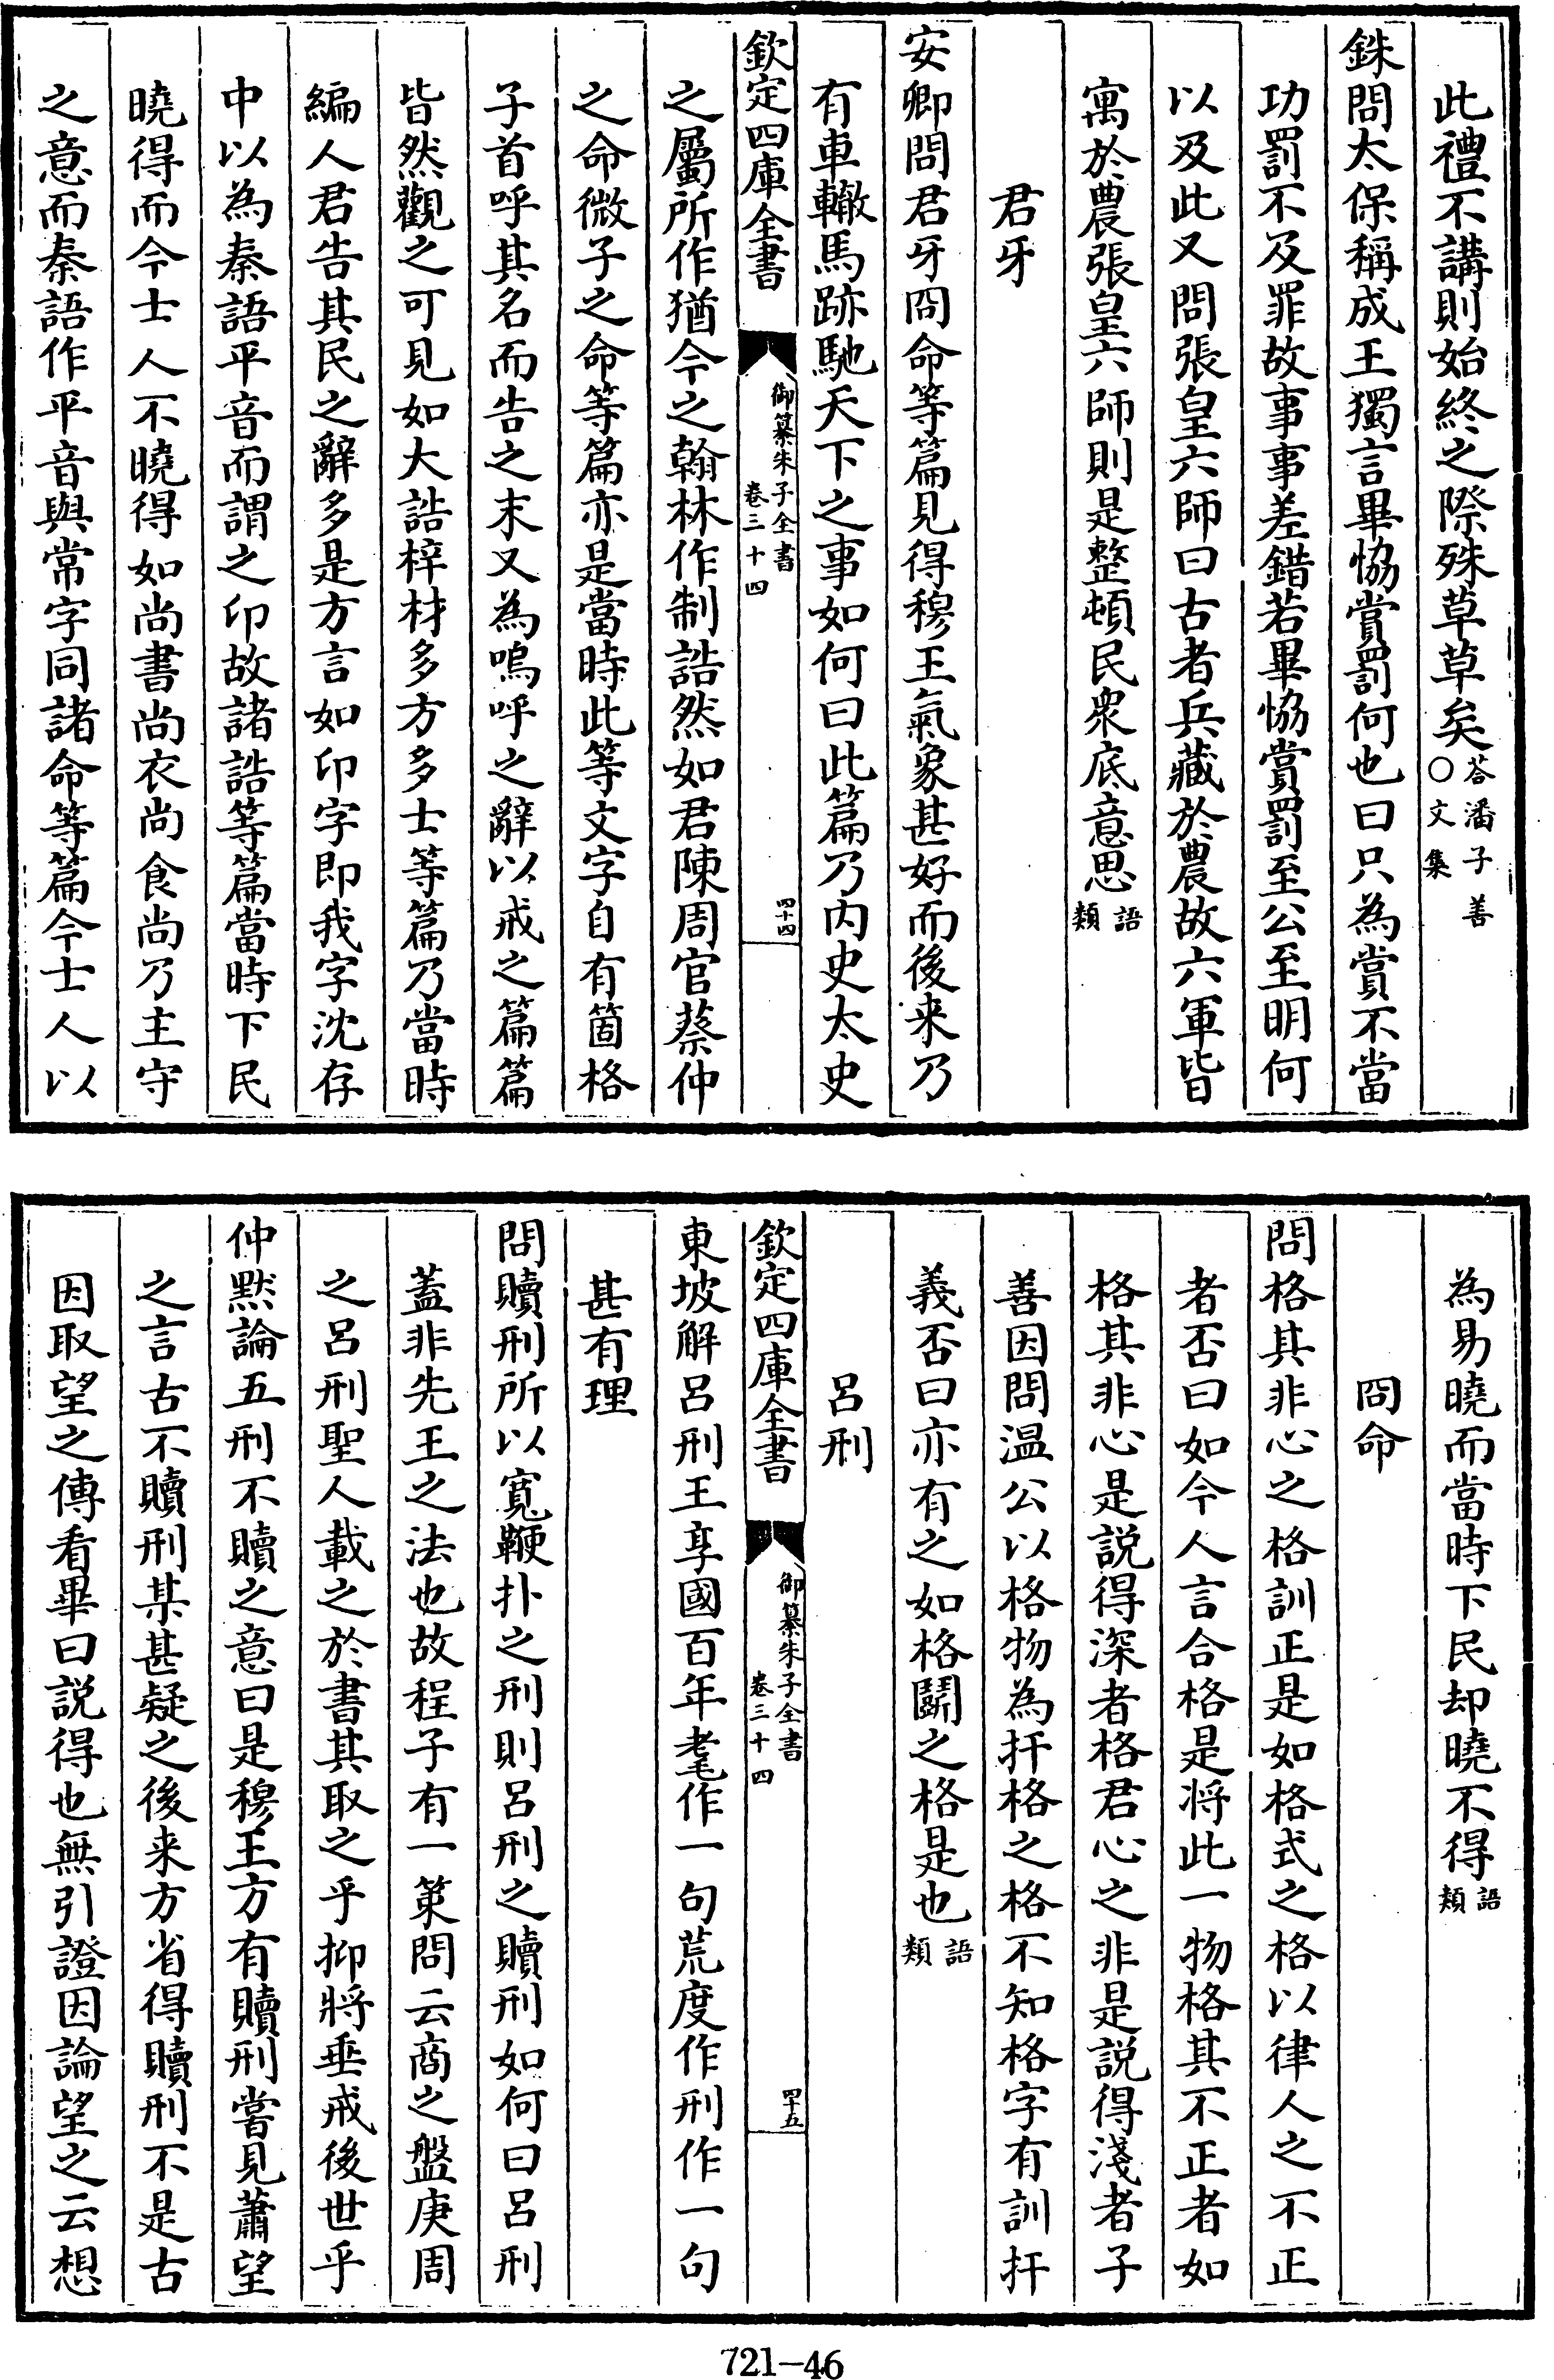 此禮不講則始終之際殊草草矣答潘子善○文集
銖問太保稱成王獨言畢恊賞罰何也曰只為賞不當
功罰不及罪故事事差錯若畢恊賞罰至公至明何
以及此又問張皇六師曰古者兵藏於農故六軍皆
寓於農張皇六師則是整頓民衆底意思語類
君牙
安卿問君牙冏命等篇見得穆王氣象甚好而後來乃
有車轍馬跡馳天下之事如何曰此篇乃内史太史
欽定四庫全書
御纂朱子全書
卷三十四
四十四
之屬所作猶今之翰林作制誥然如君陳周官蔡仲
之命微子之命等篇亦是當時此等文字自有箇格
子首呼其名而告之末又為嗚呼之辭以戒之篇篇
皆然觀之可見如大誥梓材多方多士等篇乃當時
編人君告其民之辭多是方言如卬字即我字沈存
中以為秦語平音而謂之卬故諸誥等篇當時下民
曉得而今士人不曉得如尚書尚衣尚食尚乃主守
之意而秦語作平音與常字同諸命等篇今士人以
為易曉而當時下民却曉不得語類
冏命
問格其非心之格訓正是如格式之格以律人之不正
者否曰如今人言合格是将此一物格其不正者如
格其非心是説得深者格君心之非是説得淺者子
善因問温公以格物為扞格之格不知格字有訓扞
義否曰亦有之如格鬭之格是也語類
呂刑
欽定四庫全書
御纂朱子全書
卷三十四
四十五
東坡解呂刑王享國百年耄作一句荒度作刑作一句
甚有理
問贖刑所以寬鞭扑之刑則呂刑之贖刑如何曰呂刑
蓋非先王之法也故程子有一策問云商之盤庚周
之呂刑聖人載之於書其取之乎抑將垂戒後世乎
仲黙論五刑不贖之意曰是穆王方有贖刑嘗見蕭望
之言古不贖刑某甚疑之後来方省得贖刑不是古
因取望之傳看畢曰説得也無引證因論望之云想
721-46